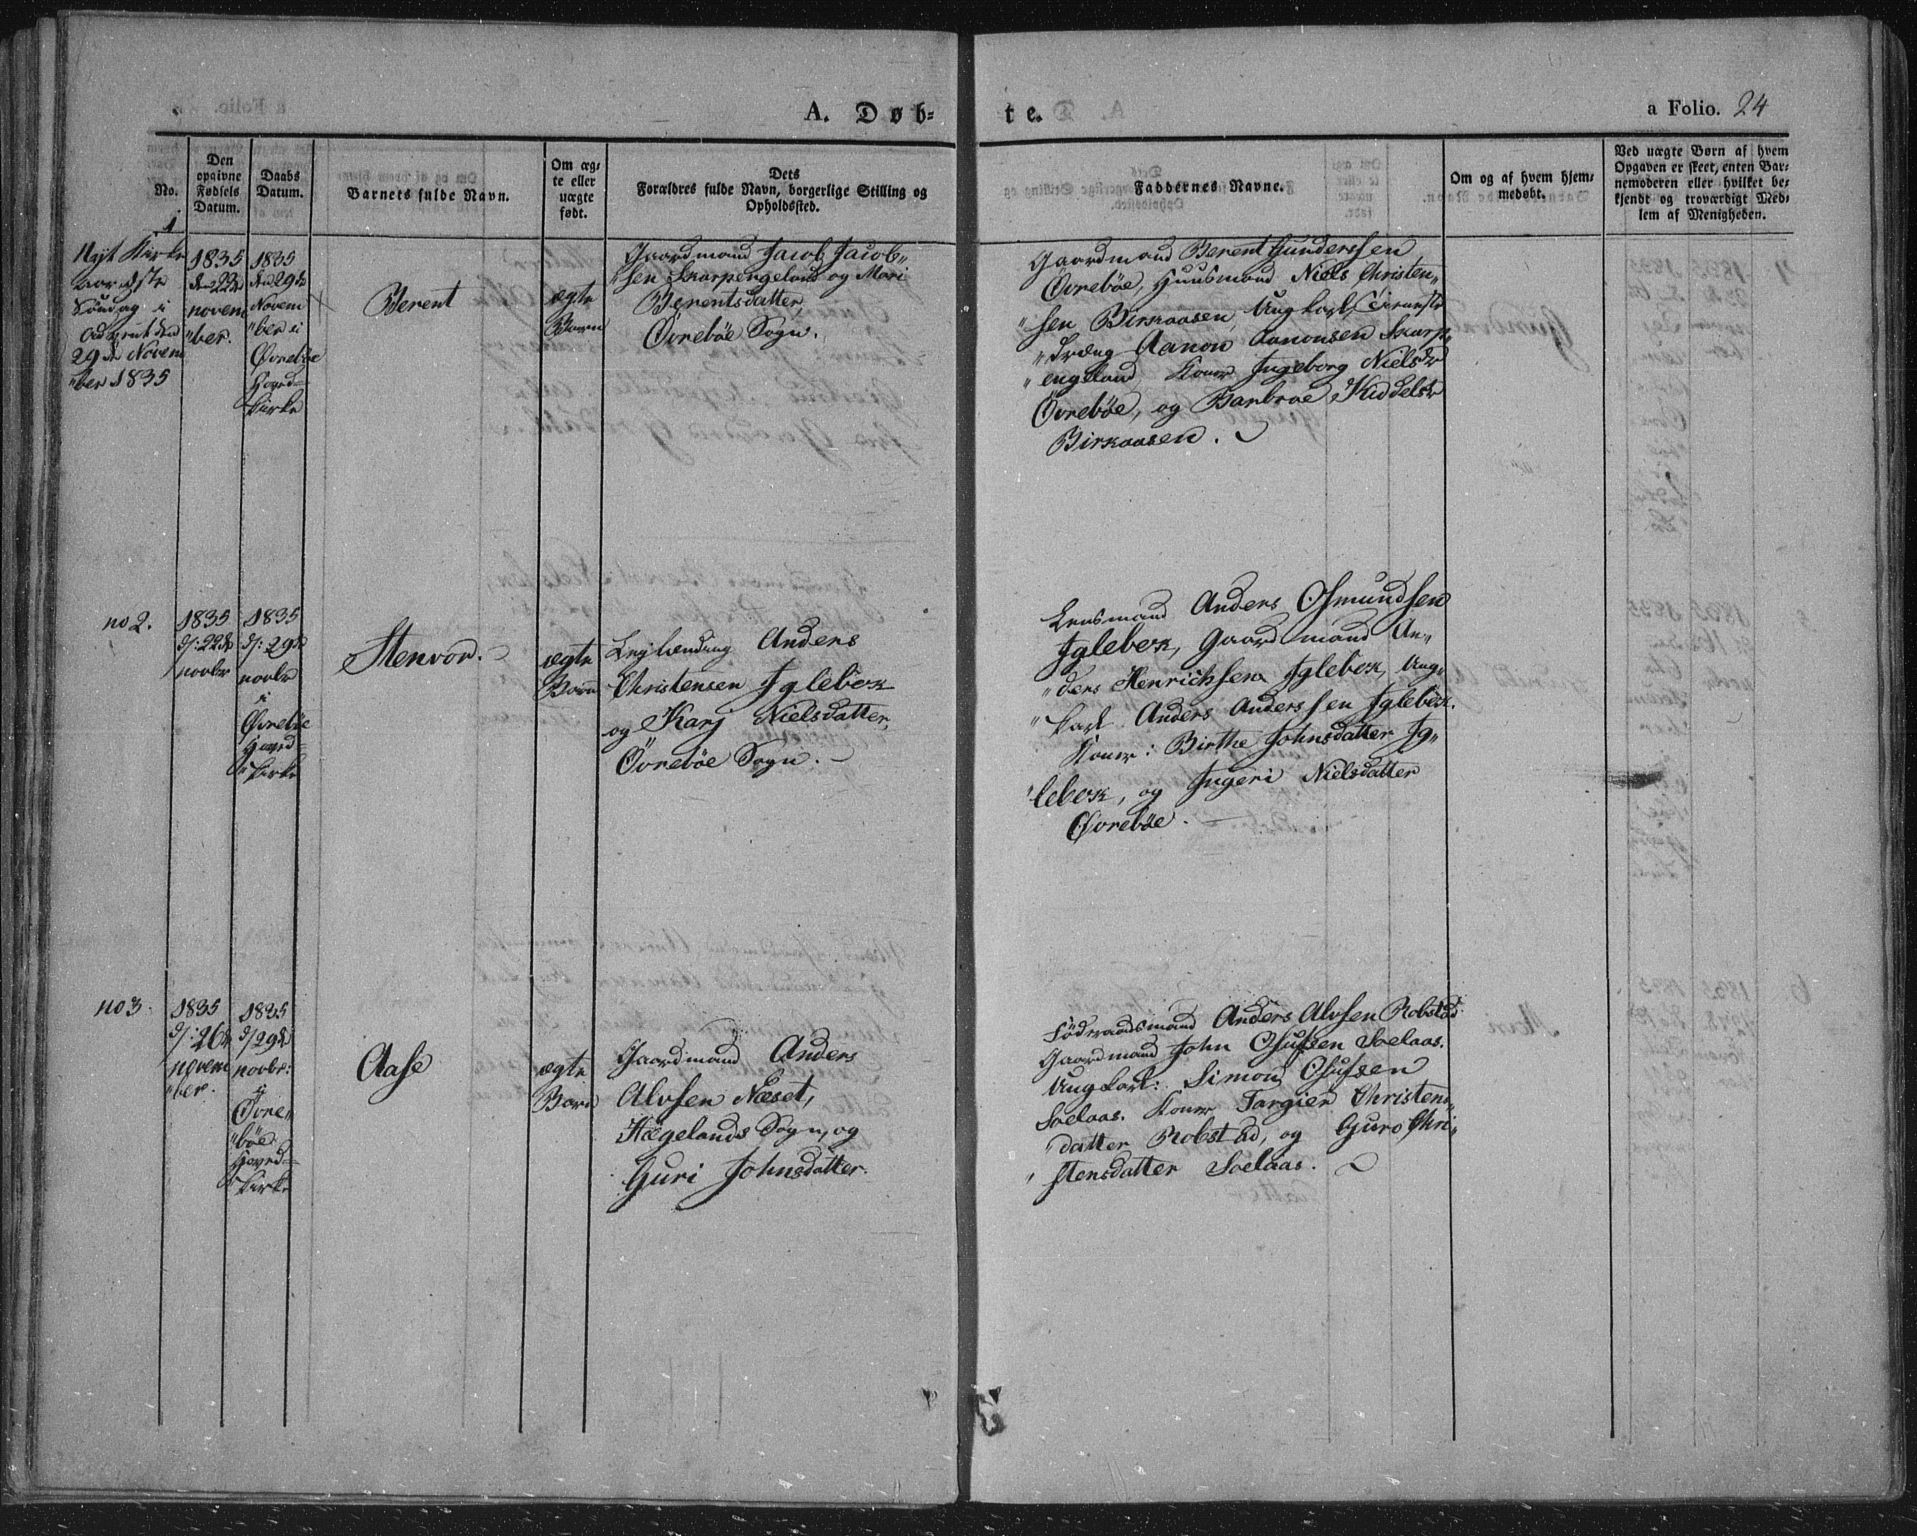 A. Døb=
te.
a Folio. 24
No.
Den
opgivne
Fødsels
Datum.
Daabs
Datum.
Barnets fulde Navn.
Om æg=
te eller
uægte
født.
Dets
Forældres fulde Navn, borgerlige Stilling og
Opholdssted.
Faddernes Navne.
Om og af hvem hjem=
medøbt.
Ved uægte Børn af hvem
Opgaven er skeet, enten Bar=
nemoderen eller hvilket be=
kjendt og troværdigt Med=
lem af Menigheden.
1
Nyt Kirke
aar 1ste
Søndag i
Advent den
29de Novem
"ber 1835
1835
den 22de
novem
"ber.
1835
den 29de
Novem
"ber i
Øvrebøe
Hoved=
"kirke
Berent
ægte
Barn
Gaardmand Jacob Jacob"
"sen Skarpengeland og Mari
Berentsdatter,
Øvrebøe Sogn.
Gaardmand Berent Gunderssen
Øvrebøe, Huusmand Niels Christen"
"sen Birkaasen, Ungkarl,
"dræng Aanon Aanonsen Skarp"
"engeland, Koner Ingeborg Nielsdr
Øvrebøe, og Barbroe Kiddelsdr
Birkaasen.
no 2.
1835
d/: 22de
novbr
1835
d/: 29de
novbr
i
Øvrebøe
Hoved=
"kirke
Stenvor.
ægte
Barn
Lejlænding Anders
Christensen Iglebek
og Karj Nielsdatter,
Øvrebøe Sogn.
Lensmand Anders Osmundsen
Iglebek, Gaardmand An"
"ders Henrichsen Iglebek, Ung"
"karl Anders Anderssen Iglebek.
Koner: Birthe Johnsdatter Ig"
"lebek, og Ingeri Nielsdatter
Øvrebøe.
no 3.
1835
d/: 26de
novem
"ber.
1835
d/ 29de
novbr:
i
Øvre"
"bøe
Hoved=
"kirke
Aase
ægte
Barn
Gaardmand Anders
Alvsen Næset,
Hægelands Sogn, og
Guri Johnsdatter.
Føderaadsmand Anders Alvsen Robstad
Gaardmand John Osufsen Soelaas.
Ungkarl: Simon Osufsen
Soelaas. Koner Targier Christens"
"datter Robstad, og Guro Chri"
"stensdatter Soelaas.